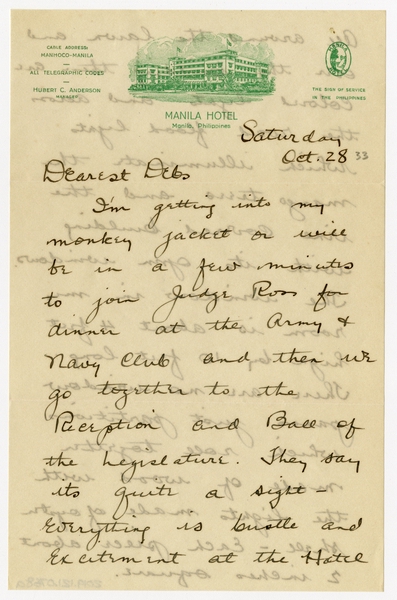 CABLE ADDRESS:
MANHOCO-MANILA
ALL TELEGRAPHIC CODES
HUBERT C. ANDERSON
MANAGER
THE SIGN OF SERVICE
IN THE PHILIPPINES
MANILA HOTEL
Manila, Philippines
Saturday
Oct. 28 33
Dearest Debs
I'm getting into my
monkey jacket or will
be in a few minutes
to join Judge Ross for
dinner at the Army &
Navy Club and then we
go together to the
Reception and Ball of
the Legislature. They say
its quite a sight -
Everything is bustle and
Excitement at the Hotel